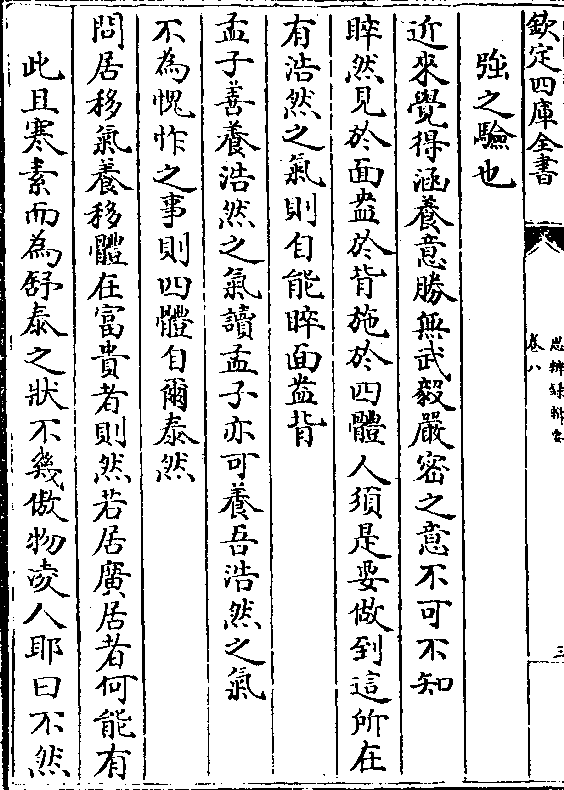 欽定四庫全書
卷八
思辨錄輯要
三
強之驗也
近來覺得涵養意勝無武毅嚴密之意不可不知
睟然見於面盎於背施於四體人須是要做到這所在
有浩然之氣則自能睟面盎背
孟子善養浩然之氣讀孟子亦可養吾浩然之氣
不為愧怍之事則四體自爾泰然
問居移氣養移體在富貴者則然若居廣居者何能有
此且寒素而為舒泰之狀不幾傲物凌人耶曰不然